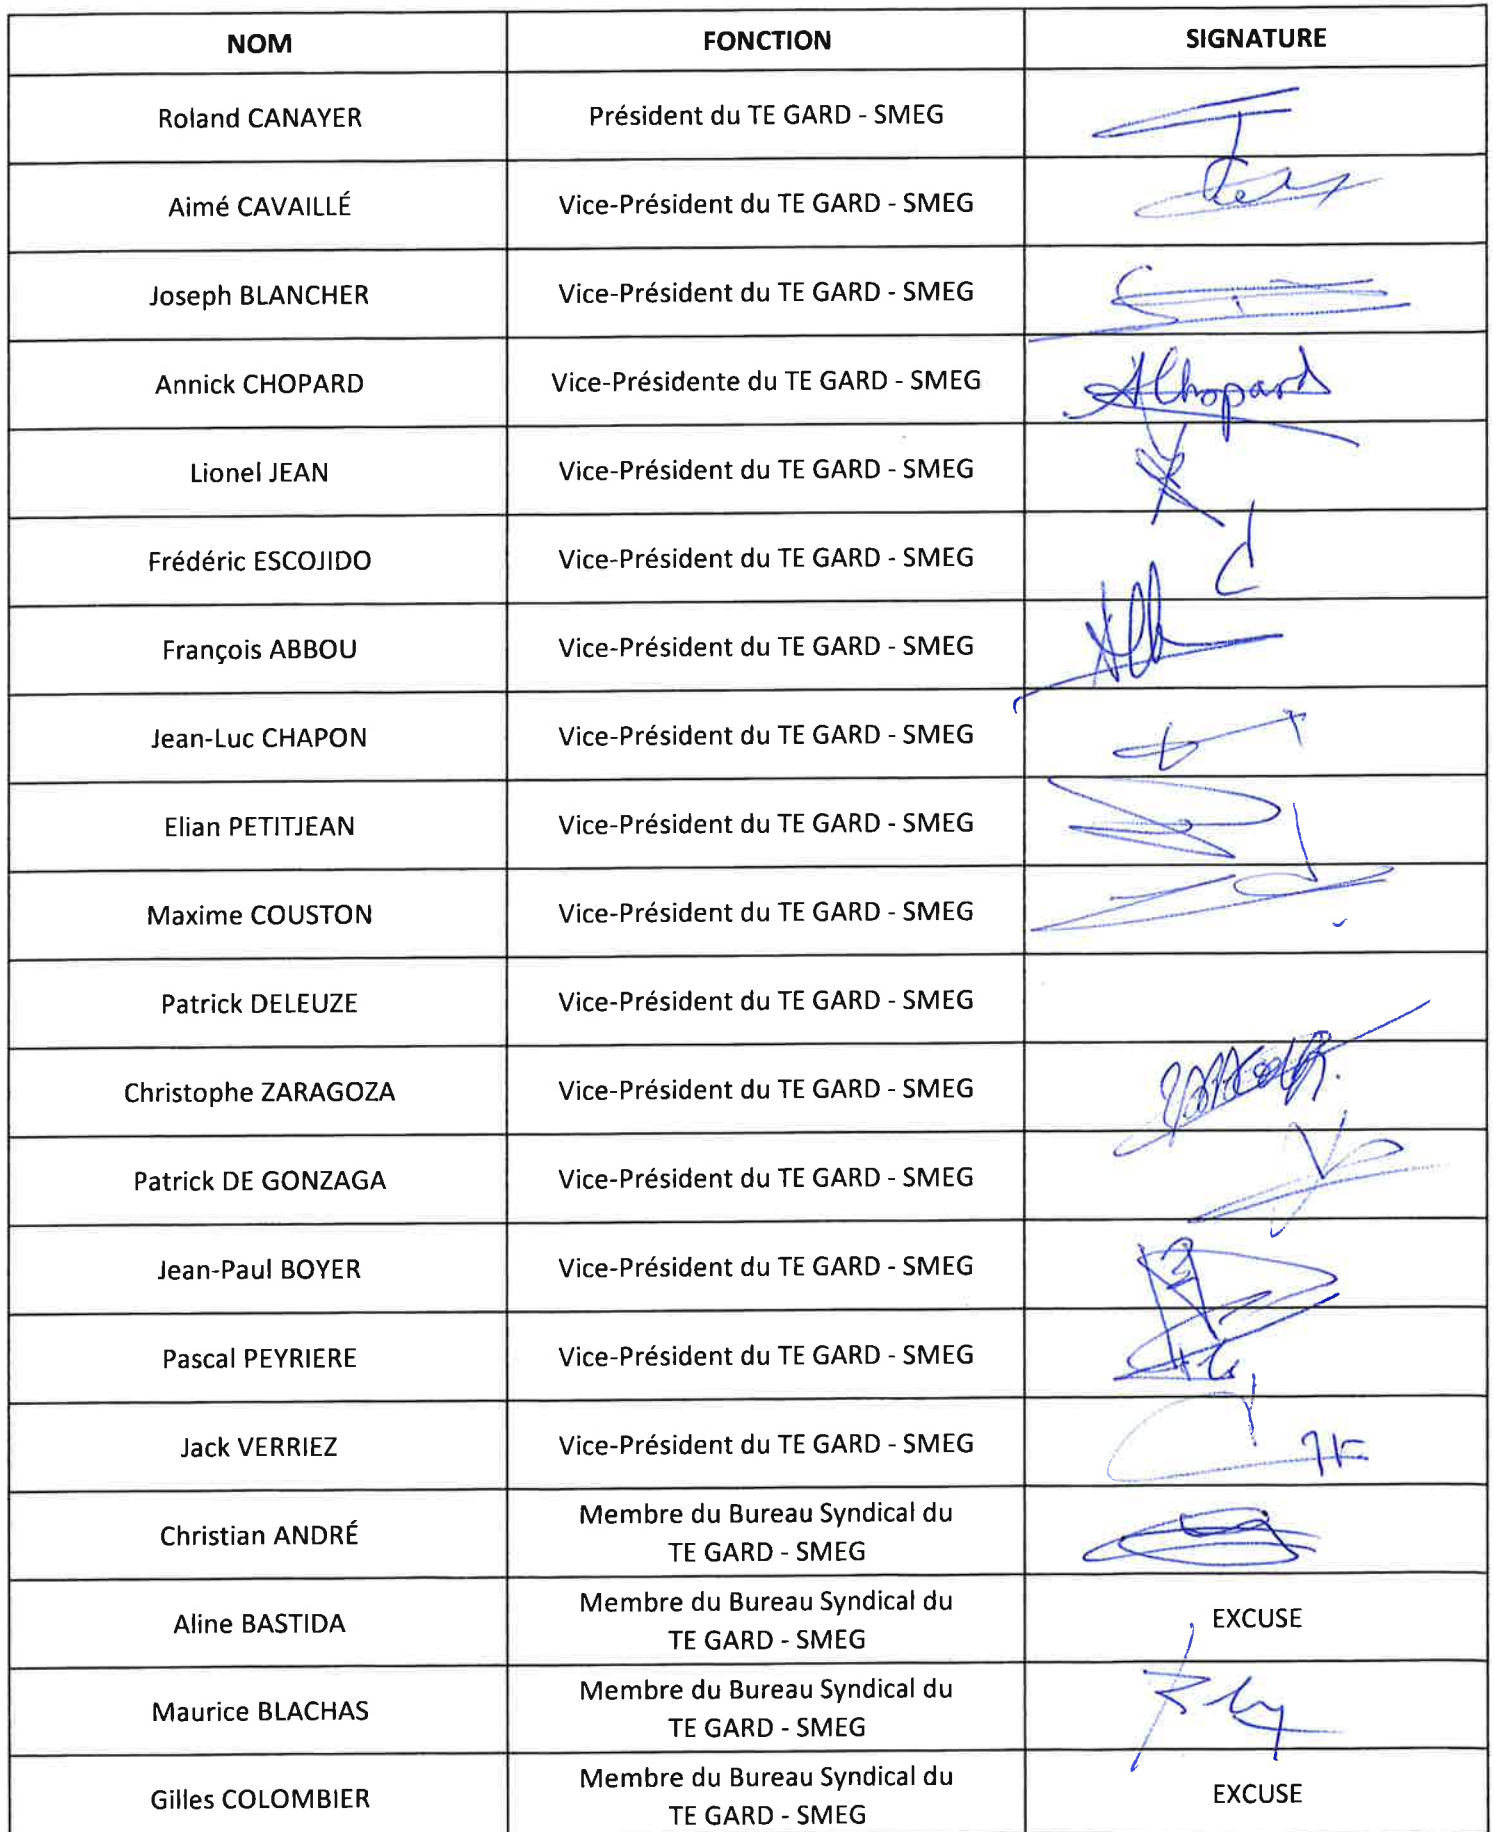 NOM FONCTION SIGNATURE
Roland CANAYER Président du TE GARD - SMEG
Aimé CAVAILLÉ Vice-Président du TE GARD - SMEG
Joseph BLANCHER Vice-Président du TE GARD - SMEG
Annick CHOPARD Vice-Présidente du TE GARD - SMEG AChopard
Lionel JEAN Vice-Président du TE GARD - SMEG
Frédéric ESCOJIDO Vice-Président du TE GARD - SMEG
François ABBOU Vice-Président du TE GARD - SMEG
Jean-Luc CHAPON Vice-Président du TE GARD - SMEG
Elian PETITJEAN Vice-Président du TE GARD - SMEG
Maxime COUSTON Vice-Président du TE GARD - SMEG
Patrick DELEUZE Vice-Président du TE GARD - SMEG
Christophe ZARAGOZA Vice-Président du TE GARD - SMEG
Patrick DE GONZAGA Vice-Président du TE GARD - SMEG
Jean-Paul BOYER Vice-Président du TE GARD - SMEG
Pascal PEYRIERE Vice-Président du TE GARD - SMEG
Jack VERRIEZ Vice-Président du TE GARD - SMEG
Christian ANDRÉ Membre du Bureau Syndical du
TE GARD - SMEG
Aline BASTIDA Membre du Bureau Syndical du
TE GARD - SMEG EXCUSE
Maurice BLACHAS Membre du Bureau Syndical du
TE GARD - SMEG
Gilles COLOMBIER Membre du Bureau Syndical du
TE GARD - SMEG EXCUSE